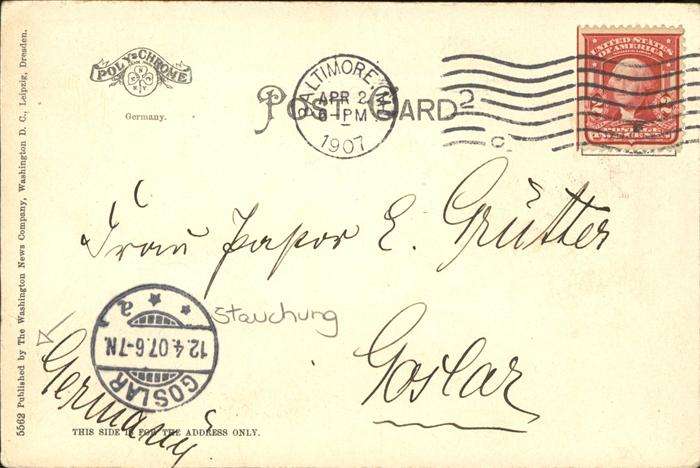 POLY-CHROME
Germany.
POST CARD
BALTIMORE, MD.
APR 2
6-PM
1907
2
C.
UNITED STATES
OF AMERICA
5562 Published by The Washington News Company, Washington D. C., Leipzig, Dresden.
Frau Pastor E. Grütter
Stauchung
GOSLAR
12.4.07.6-7N.
a
Goslar
Germany
THIS SIDE IS FOR THE ADDRESS ONLY.